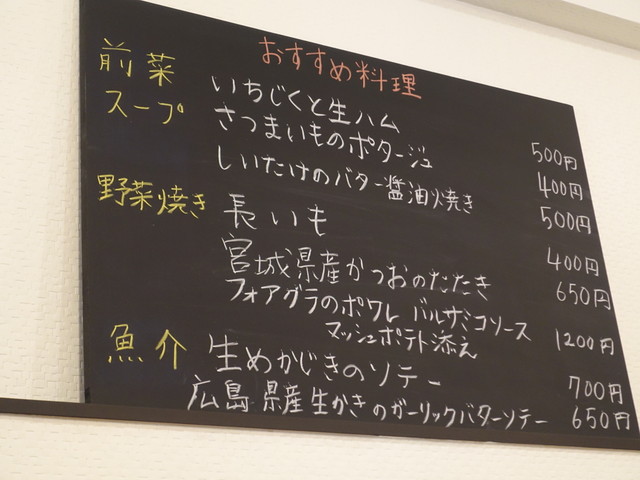 おすすめ料理
前菜 いちじくと生ハム 500円
スープ さつまいものポタージュ 400円
しいたけのバター醤油焼き 500円
野菜焼き 長いも 400円
宮城県産かつおのたたき 650円
フォアグラのポワレ バルサミコソース
マッシュポテト添え 1200円
魚介 生めかじきのソテー 700円
広島県産生かきのガーリックバターソテー 650円